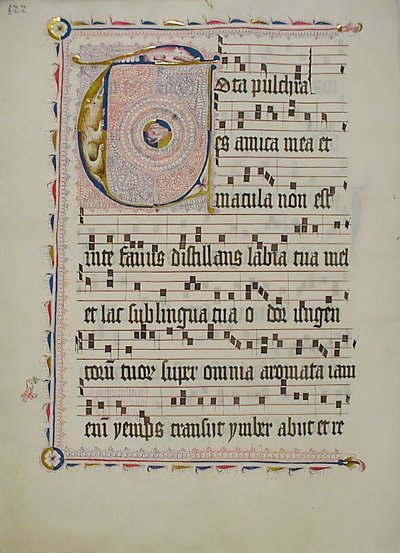 Tota pulchra
es amica mea et
macula non est
in te favus distillans labia tua mel
et lac sub lingua tua o dor ungen
toru tuor super omnia aromata iam
eni yemps transiit ymber abiit et re